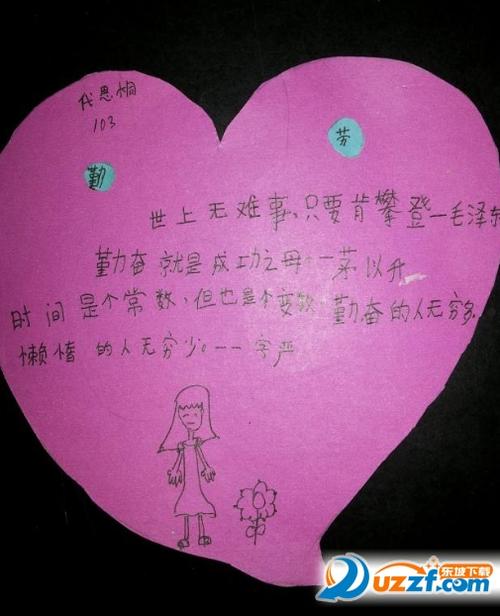 103
劳
勤
世上无难事，只要肯攀登一毛泽东
勤奋就是成功之母一茅以升
时间是个常数，但也是个变数，勤奋的人无穷多，
懒惰的人无穷少。一一字严
东坡下载
uzzf.com